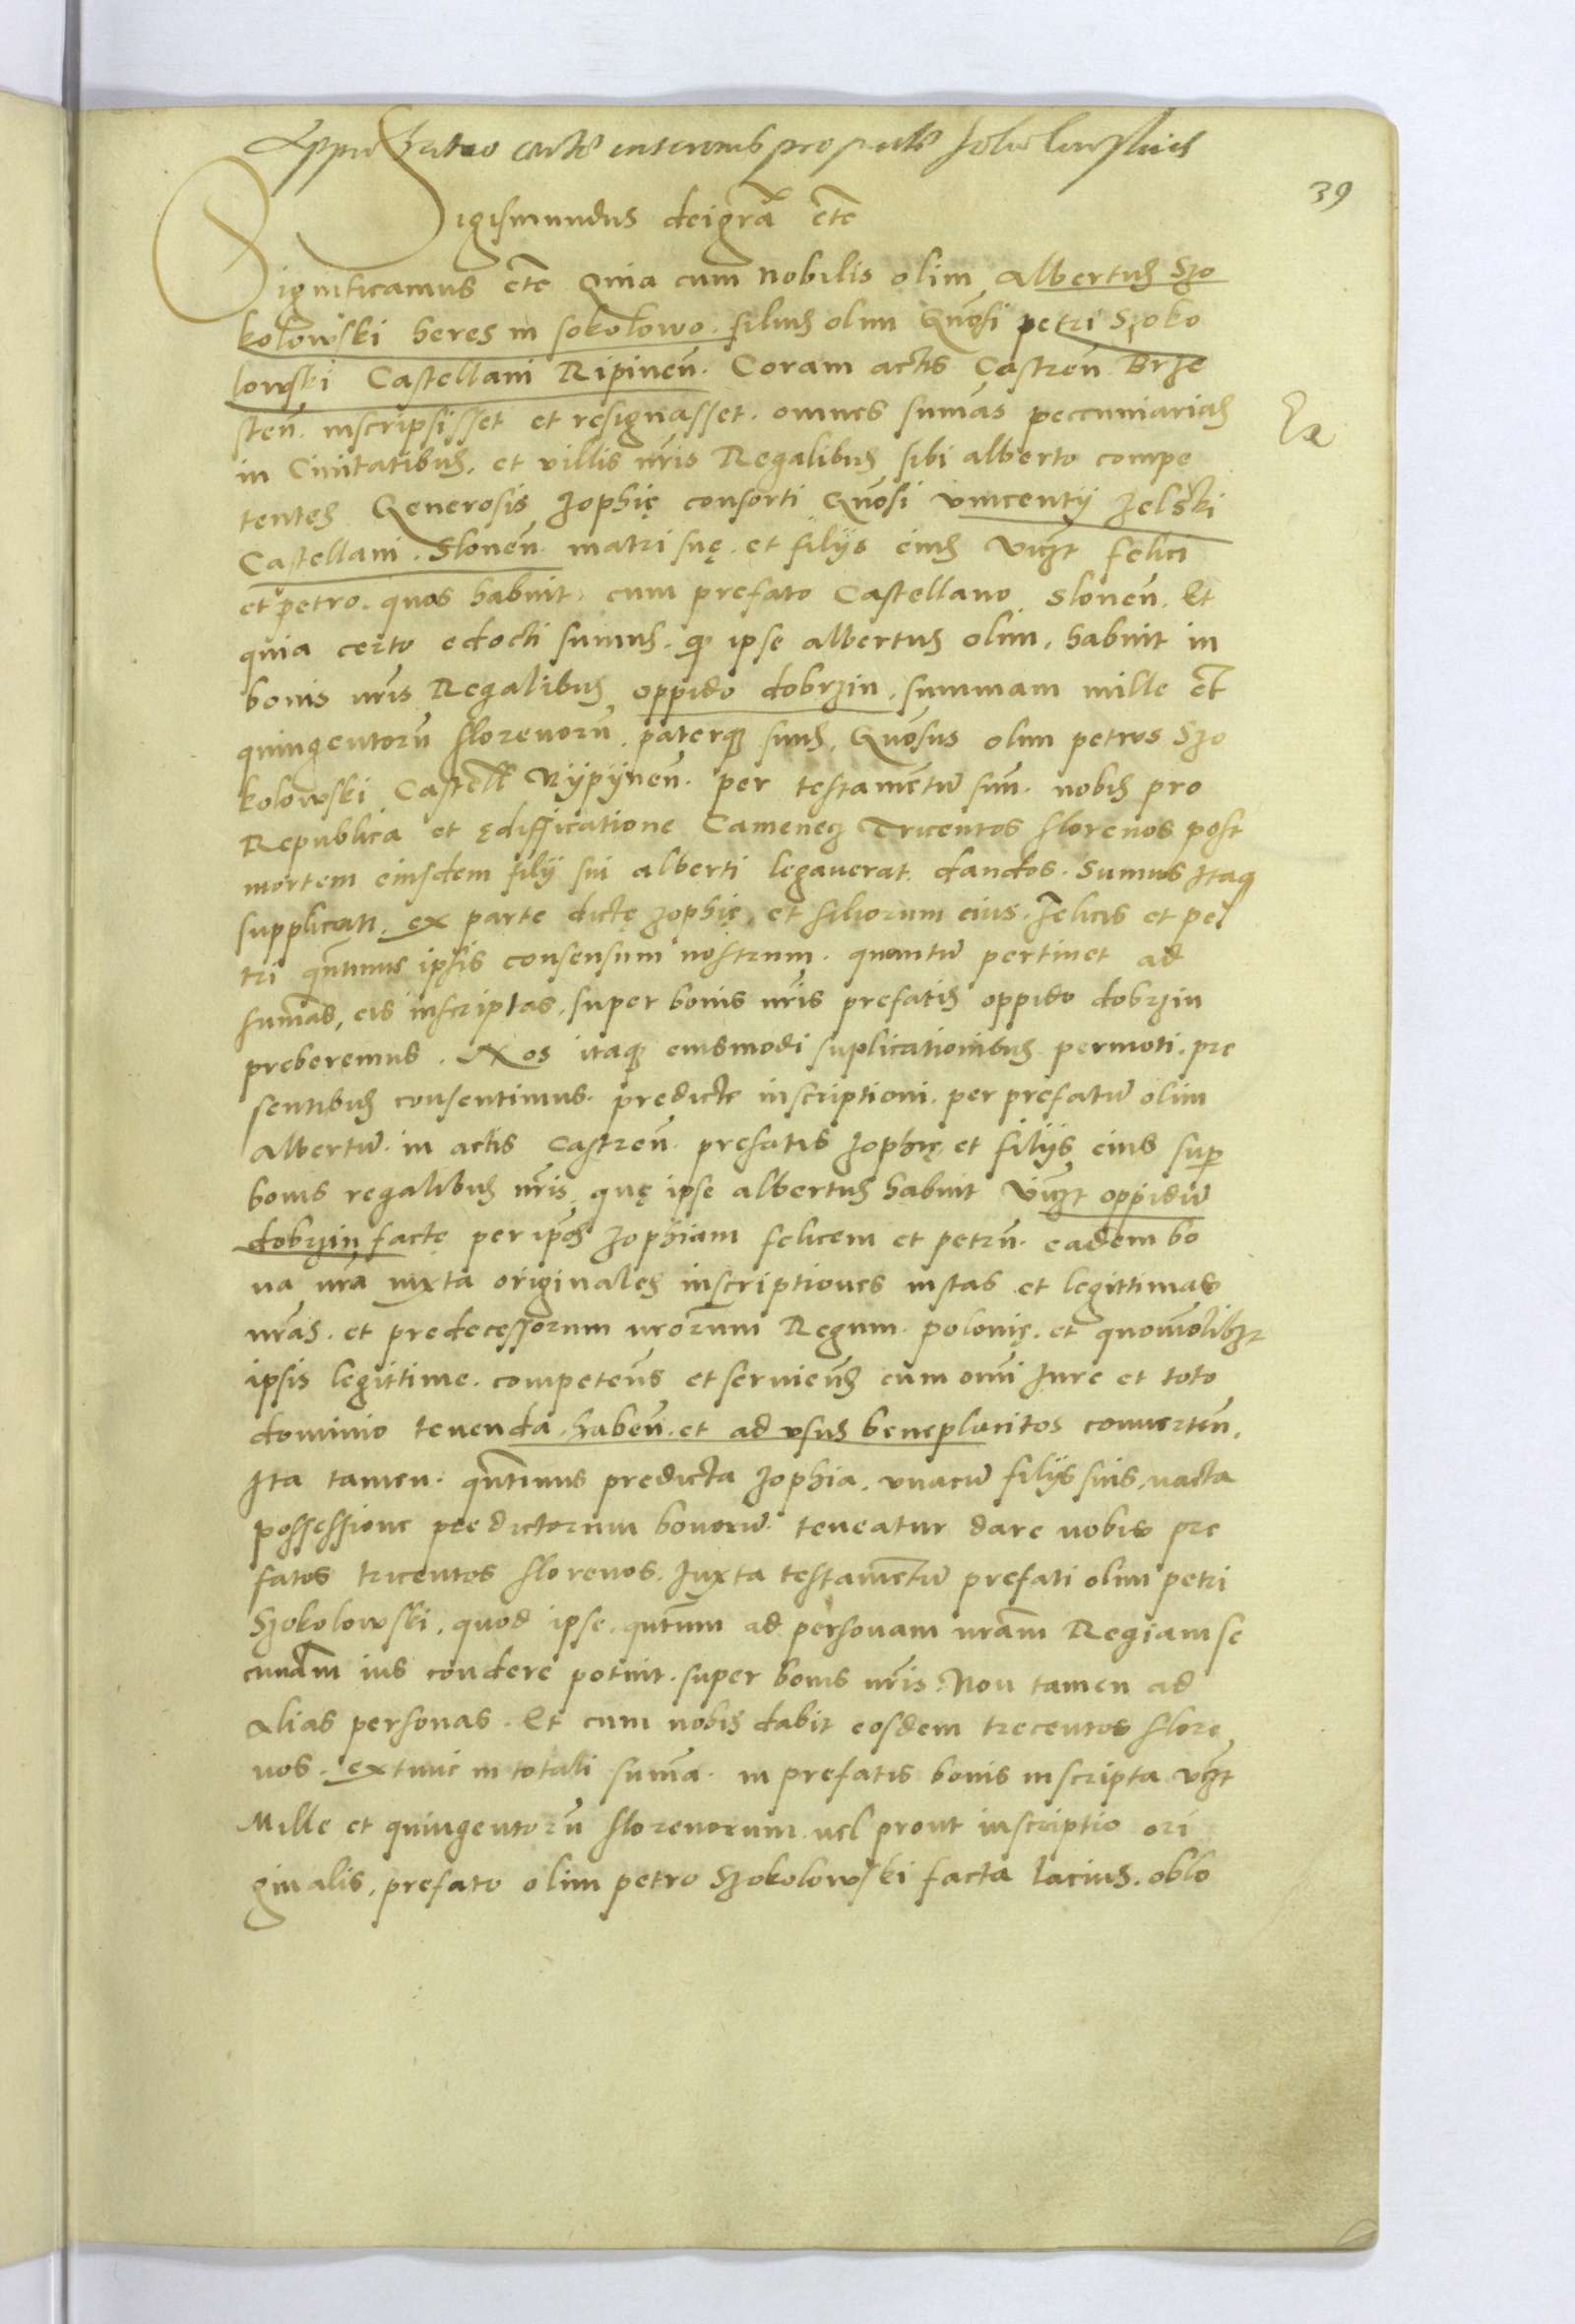 39
Sigismundus dei gr̃a etc̃
Significamus etc̃ Quia cum nobilis olim Albertus Szo
kolowski heres in sokolowo. filius olim Gn̄osi petri Szoko
lowski Castellani Ripineñ. Coram actis Castreñ Brze
steñ. inscripsisset et resignasset. omnes sum̃as peccuniarias
in Ciuitatibus. et villis nr̃is Regalibus sibi alberto compe
tentes Generosis Zophię consorti Gn̄osi vincentij Jelski
Castellani. Sloneñ. matri suę. et filijs eius vic̃zt felici
et petro. quos habuit. cum prefato Castellano Sloneñ. Et
quia certo edocti sumus. qp̃ ipse albertus olim. habuit in
bonis nr̃is Regalibus oppido dobrzin. summam mille et
quingentorũ florenorũ. paterqʒ suus. Gn̄osus olim petrus Szo
kolowski Castell̃ Rijpijneñ. per testamentũ suũ. nobis pro
Republica et ędifficatione Camenecz Tricentos florenos post
mortem eiusdem filij sui alberti legauerat. dandos. Sumus Itaqʒ
supplicati. ex parte dictę zophię. et filiorum eius. Felicis et pe
tri qñtinus ipsis consensum nostrum. quantũ pertinet ad
sum̃as, eis inscriptas. super bonis nr̃is prefatis oppido dobrzin
preberemus. Nos itaqʒ eiusmodi suplicationibus permoti. pre
sentibus consentimus. predicte inscriptioni. per prefatũ olim
Albertũ. in actis Castreñ. prefatis zophię et filijs eius sup̱
bonis regalibus nr̃is. quę ipse albertus habuit vic̃zt oppidũ
dobrzin factę per ip̃os zophiam felicem et petrũ. eadem bo
na nr̃a iuxta originales inscriptiones iustas et legittimas
nr̃as. et predecessorum nr̃orum Regum. polonię. et quom̃olibʒt
ipsis legittime. competeñs et seruieñs cum om̃i Iure et toto
dominio tenenda. habeñ. et ad vsus beneplacitos conuerteñ.
Ita tamen. qñtinus predicta zophia. vnacũ filijs suis. nacta
possessione predictorum bonorũ. teneatur dare nobis pre
fatos tricentos florenos. Iuxta testamentũ prefati olim petri
Szokolowski. quod ipse. qñtum ad personam nr̃am Regiam se
cundũm ius condere potuit. super bonis nr̃is. Non tamen ad
alias personas. Et cum nobis dabit eosdem trecentos flore
nos. extunc in totali sum̃a. in prefatis bonis inscripta vic̃zt
Mille et quingentorũ florenorum. vel prout inscriptio ori
ginalis. prefato olim petro Szokolowski facta lacius. oblo